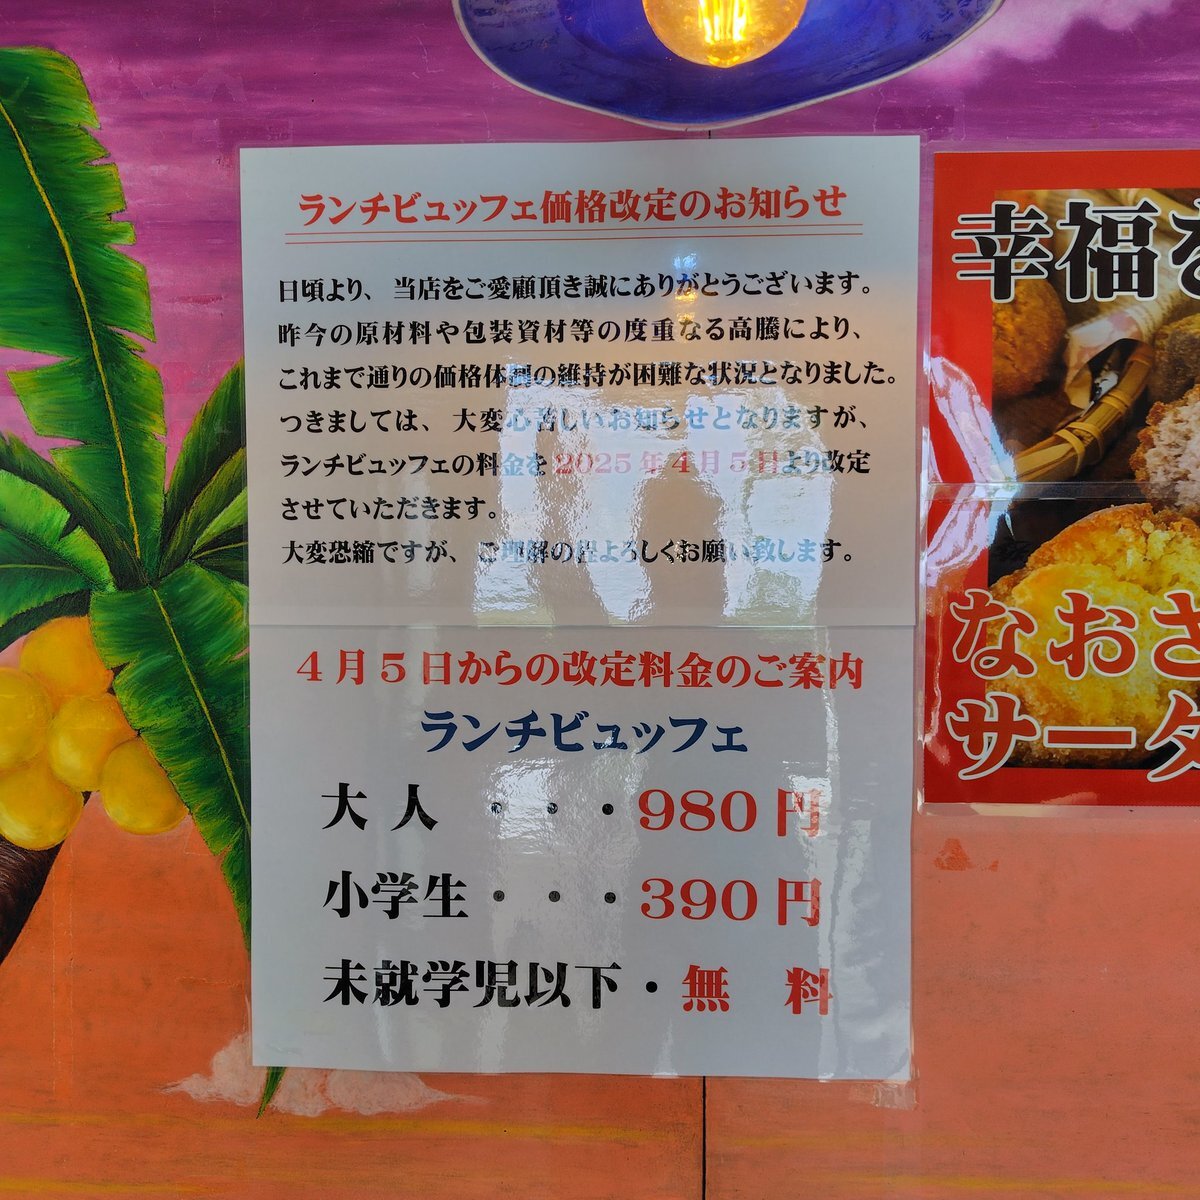 ランチビュッフェ価格改定のお知らせ
日頃より、当店をご愛顧頂き誠にありがとうございます。
昨今の原材料や包装資材等の度重なる高騰により、
これまで通りの価格体制の維持が困難な状況となりました。
つきましては、大変心苦しいお知らせとなりますが、
ランチビュッフェの料金を2025年4月5日より改定
させていただきます。
大変恐縮ですが、ご理解の程よろしくお願い致します。
4月5日からの改定料金のご案内
ランチビュッフェ
大人・・・980円
小学生・・・390円
未就学児以下・無 料
幸福を
なおさ
サータ